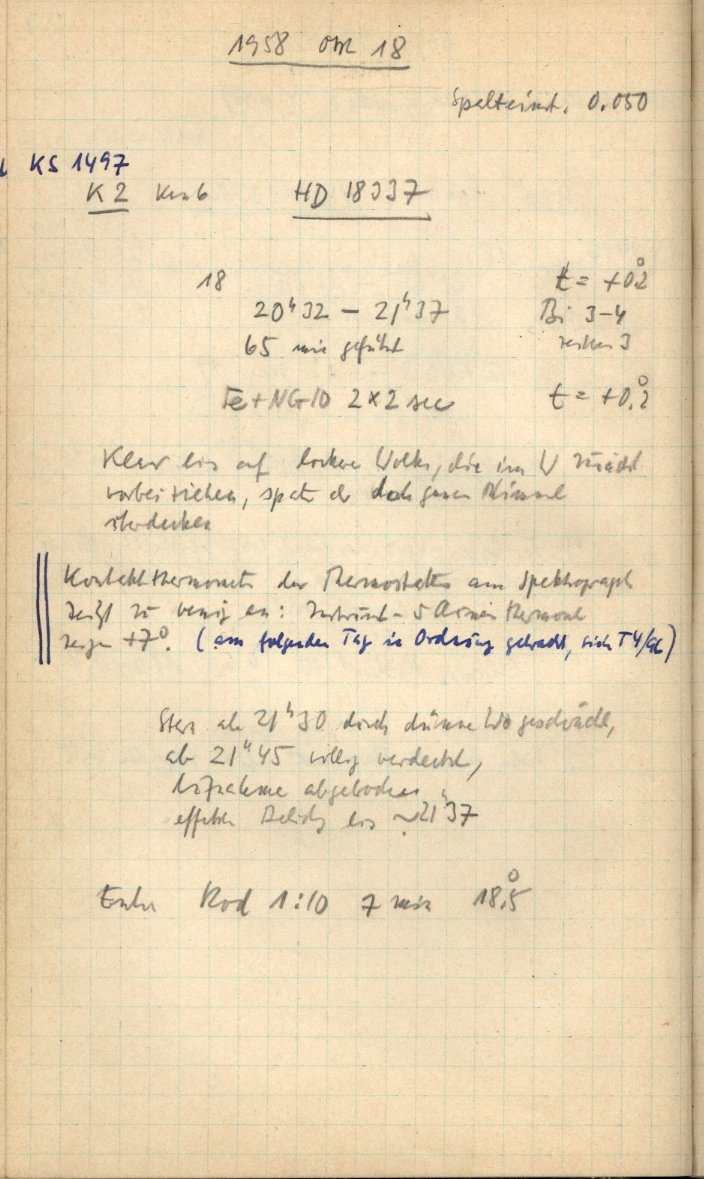 1958 Okt 18
Spalteinst. 0.050
KS 1497
K2 HD 18337
18 t = +0.2°
20ʰ32 – 21ʰ37 Bi 3–4
65 min geführt 3
Fe+NG10 2×2 sec t = +0.2°
Klar bis auf lockere Wolken, die im W zunächst
vorbeiziehen, später den Himmel
überdecken
Kontaktthermometer des Thermostaten am Spektrograph
zeigt zu wenig an:
zeigen +7°. (am folgenden Tag in Ordnung gebracht, T4/
Stern ab 21ʰ30 durch dünne Wo geschwächt,
ab 21ʰ45 völlig verdeckt,
Aufnahme abgebrochen
effektive bis ~21ʰ37
Entw Rod 1:10 7 min 18.5°